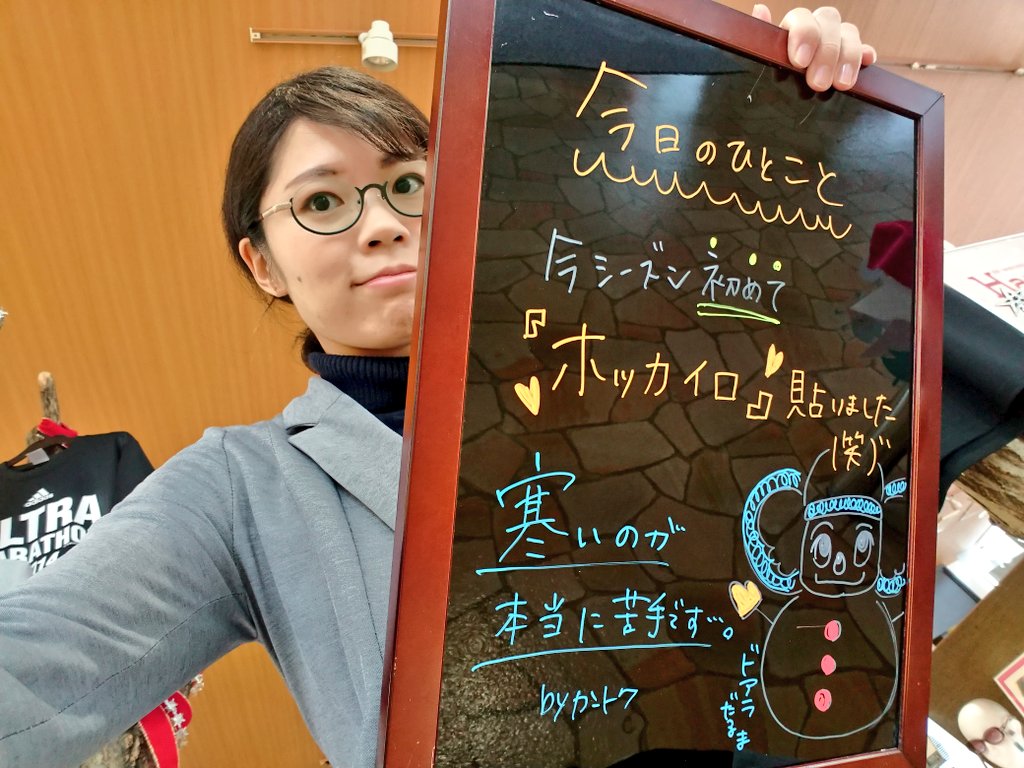 今日のひとこと
今シーズン初めて
『ホッカイロ』貼りました
(笑)
寒いのが
本当に苦手です…。
byカントク
ドアラ
だるま
adidas
LTRA
ARATHO